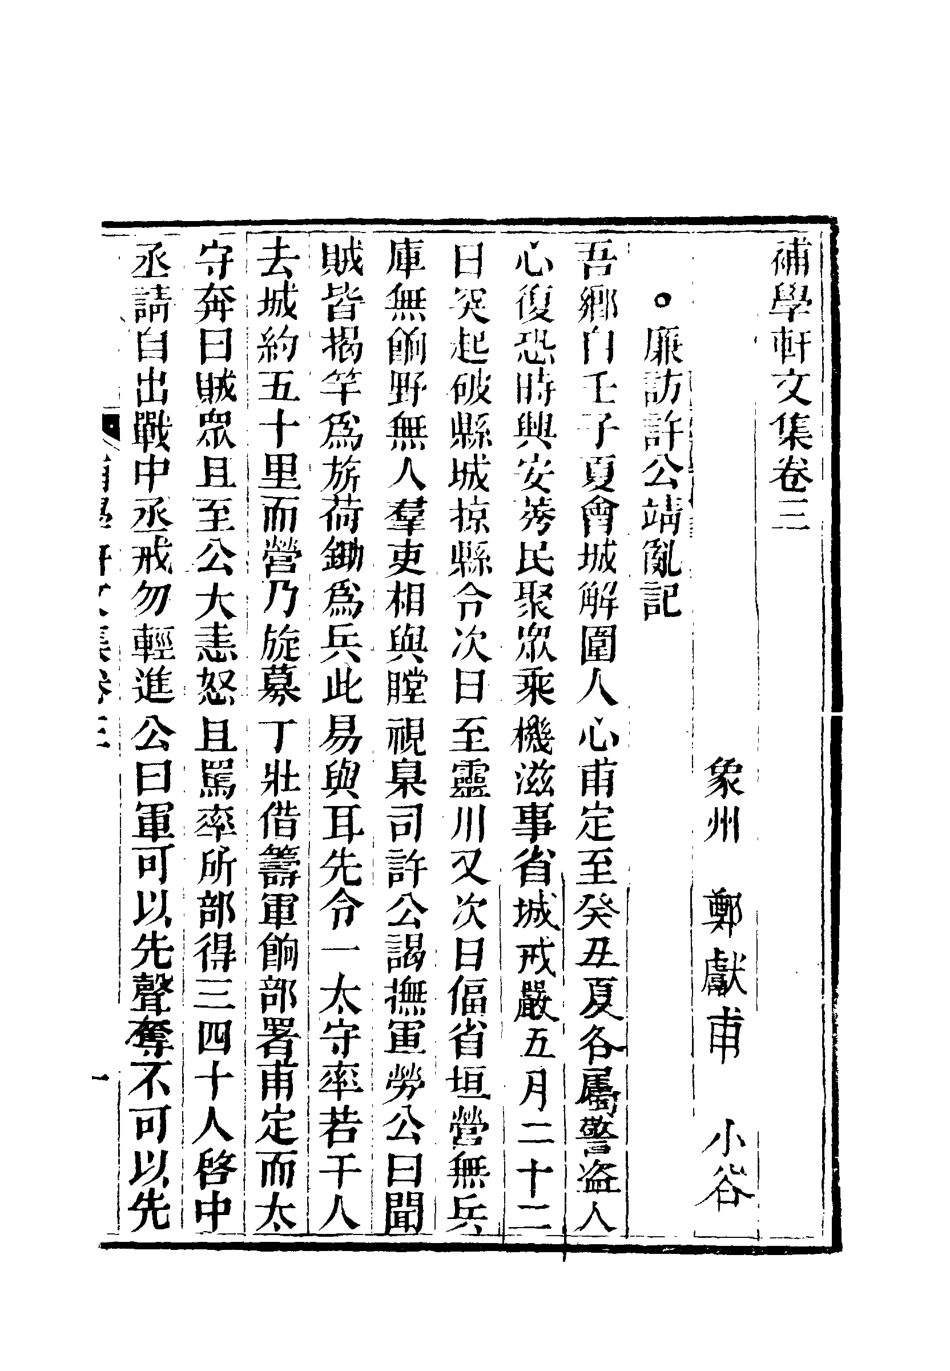 補學軒文集卷三
象州　鄭獻甫　小谷
。廉訪許公靖亂記
吾鄉自壬子夏會城解圍人心甫定至癸丑夏各屬警盜人
心復恐時興安莠民聚眾乘機滋事省城戒嚴五月二十二
日突起破縣城掠縣令次日至靈川又次日偪省垣營無兵
庫無餉野無人羣吏相與瞠視臬司許公謁撫軍勞公曰聞
賊皆揭竿爲旂荷鋤爲兵此易與耳先令一太守率若干人
去城約五十里而營乃旋募丁壯借籌軍餉部署甫定而太
守奔曰賊眾且至公大恚怒且罵率所部得三四十人啓中
丞請自出戰中丞戒勿輕進公曰軍可以先聲奪不可以先
補學軒文集卷三
一